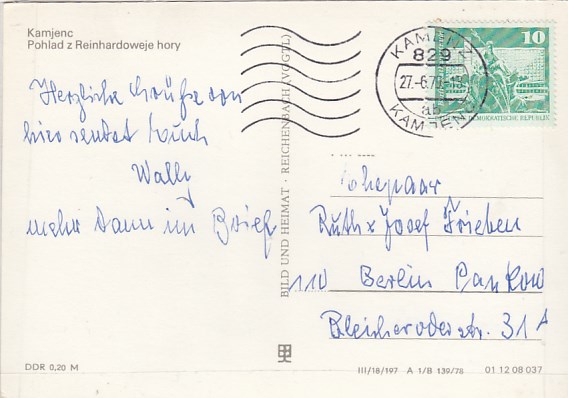 Kamjenc
Pohlad z Reinhardoweje hory
Herzliche Grüße von
hier sendet Euch
Wally
mehr dann im Brief
BILD UND HEIMAT · REICHENBACH (VOGTL)
KAMENZ
829
27.-6.79.-15
KAMJENC
10
DEMOKRATISCHE REPUBLIK
Ehepaar
Ruth u Josef Frieben
110 Berlin Pankow
Bleicheroderstr. 31A
DDR 0,20 M
III/18/197 A 1/B 139/78
01 12 08 037